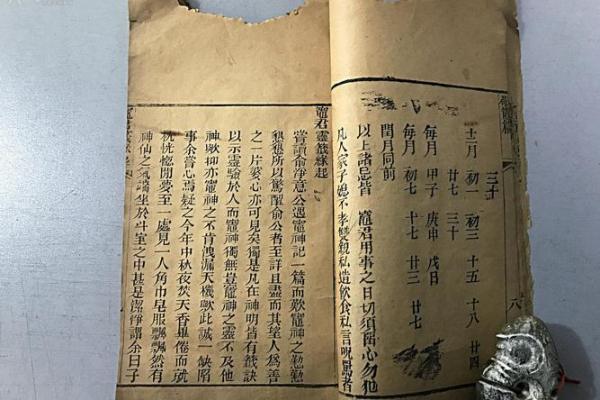 三十
十二月 初一 初三 十五 十八 廿四
廿七 三十
每月 甲子 庚申 戊日
每月 初七 十七 廿三 廿七
閏月同前
以上諸忌皆 竈君用事之日切須留心勿犯
凡人家子媳不孝雙親私造飲食私言咒罵者
八
竈君靈籤緣起
嘗讀俞淨意公遇竈神記一篇而歎竈神之懃懃
懇懇所以驚醒俞公者至詳且盡而其望人為善
之一片婆心亦可見矣獨是凡在神明皆有籤訣
以示靈驗於人而竈神獨無豈竈神之靈不及他
神歟抑亦竈神之不肯洩漏天機歟此誠一缺陷
事余嘗心焉疑之今年中秋夜焚天香畢倦而就
枕恍惚開夢至一處見一人角巾皂服飄飄然有
神仙之氣端坐於斗室之中甚是潔淨謂余曰子